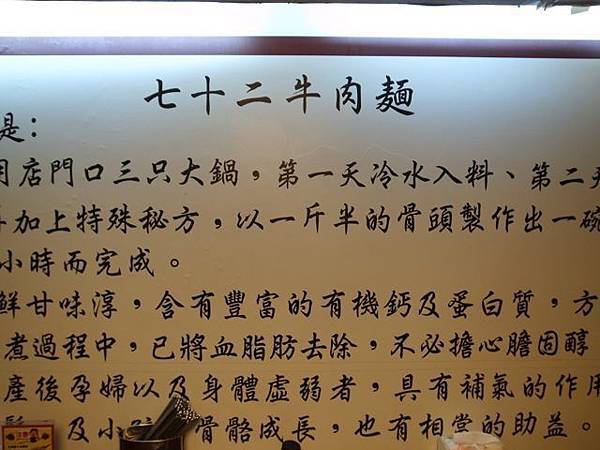 七十二牛肉麵
是:
用店門口三只大鍋,第一天冷水入料、第二天
加上特殊秘方,以一斤半的骨頭製作出一碗
小時而完成。
鮮甘味淳,含有豐富的有機鈣及蛋白質,方
煮過程中,已將血脂肪去除,不必擔心膽固醇
產後孕婦以及身體虛弱者,具有補氣的作用
及小 骨骼成長,也有相當的助益。